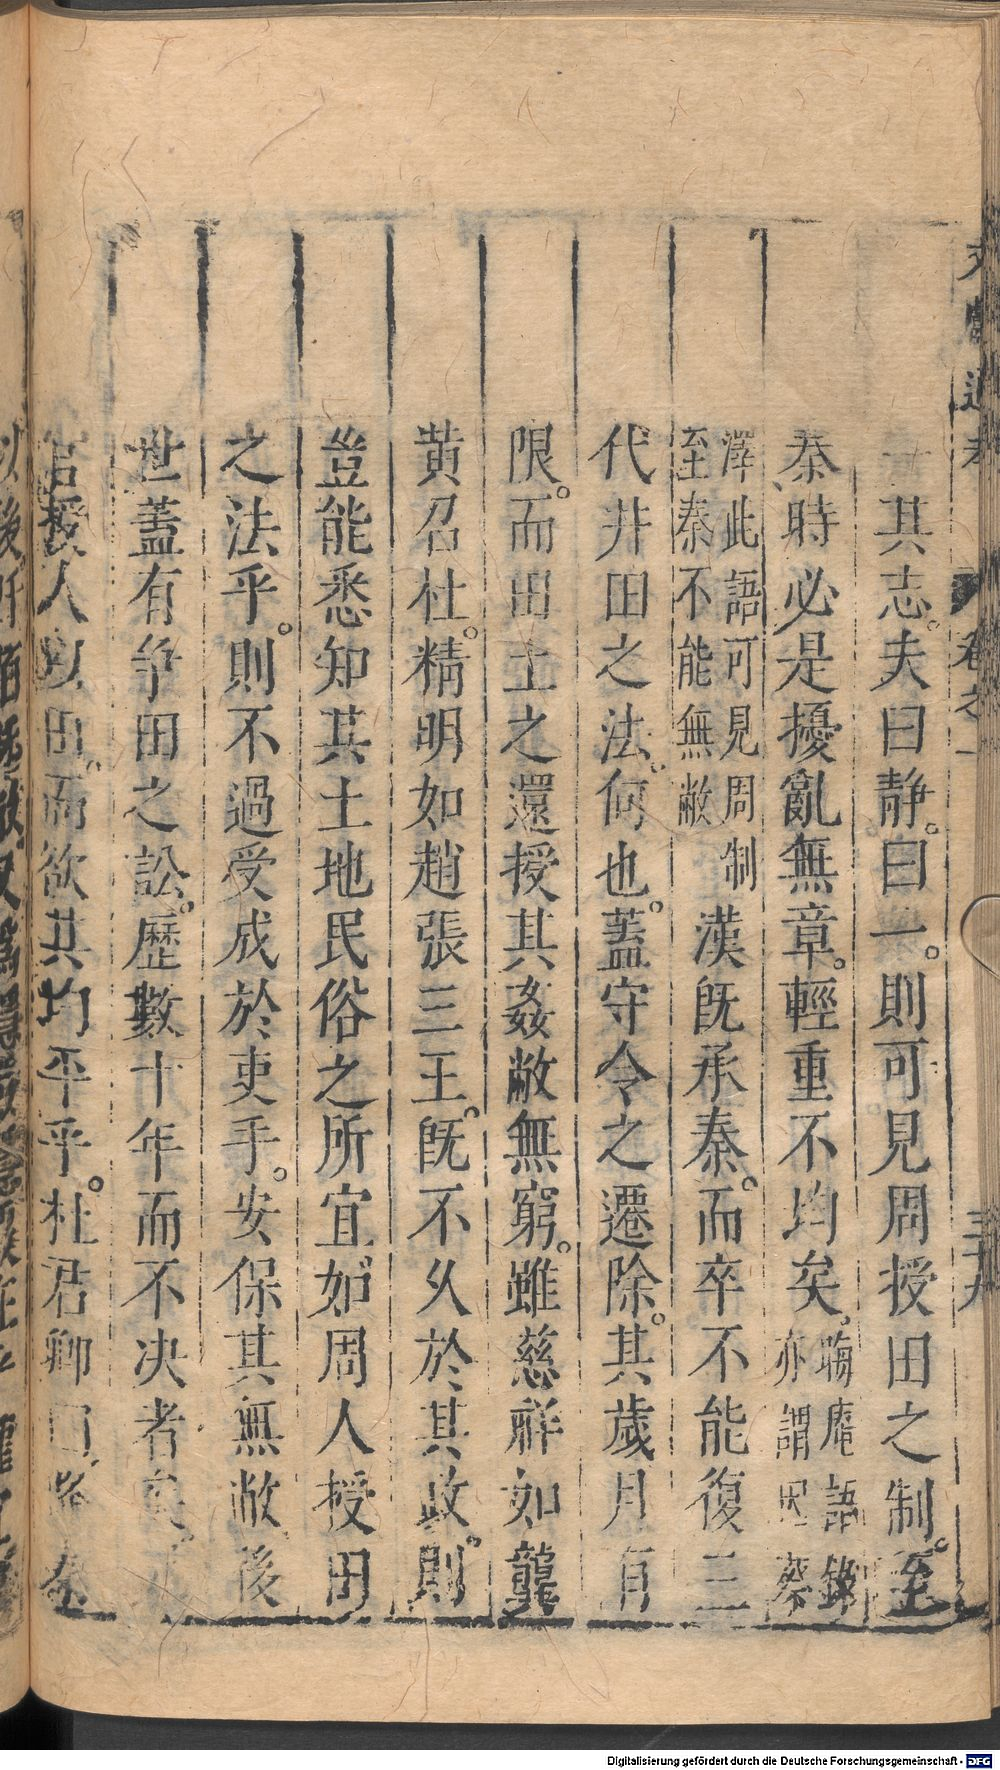 文獻通考 卷之一 三十九
一其志夫曰靜曰一則可見周授田之制至
秦時必是擾亂無章輕重不均矣晦庵語錄亦謂因蔡
澤此語可見周制至秦不能無敝漢旣承秦而卒不能復三
代井田之法何也蓋守令之遷除其歲月有
限而田土之還授其姦敝無窮雖慈祥如龔
黃召杜精明如趙張三王旣不久於其政則
豈能悉知其土地民俗之所宜如周人授田
之法乎則不過受成於吏手安保其無敝後
世蓋有爭田之訟歷數十年而不决者矣
官授人以田而欲其均平乎杜君卿曰 秦
Digitalisierung gefördert durch die Deutsche Forschungsgemeinschaft - DFG